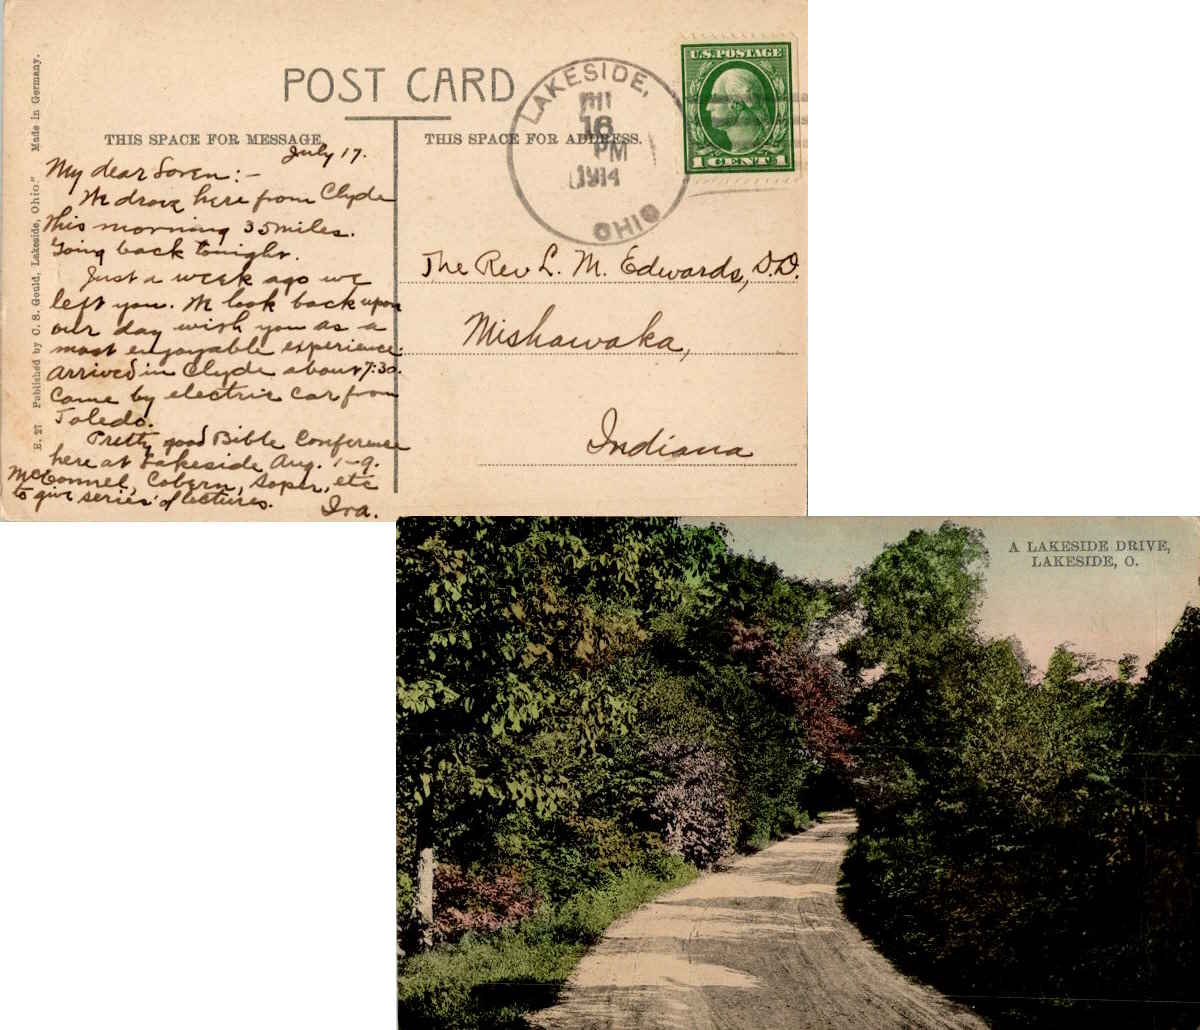 POST CARD
THIS SPACE FOR MESSAGE.
THIS SPACE FOR ADDRESS.
E. 27 Published by C. S. Gould, Lakeside, Ohio." Made in Germany.
July 17.
My dear Loren:-
We drove here from Clyde
this morning 35 miles.
Going back tonight.
Just a week ago we
left you. We look back upon
our day with you as a
most enjoyable experience.
Arrived in Clyde about 7:30.
Came by electric car from
Toledo.
Pretty good Bible Conference
here at Lakeside Aug. 1-9.
McConnel, Cobern, Soper, etc
to give series of lectures.
Ira.
LAKESIDE,
16
PM
1914
OHIO
U.S. POSTAGE
1 CENT 1
The Rev L. M. Edwards, D.D.
Mishawaka,
Indiana
A LAKESIDE DRIVE,
LAKESIDE, O.